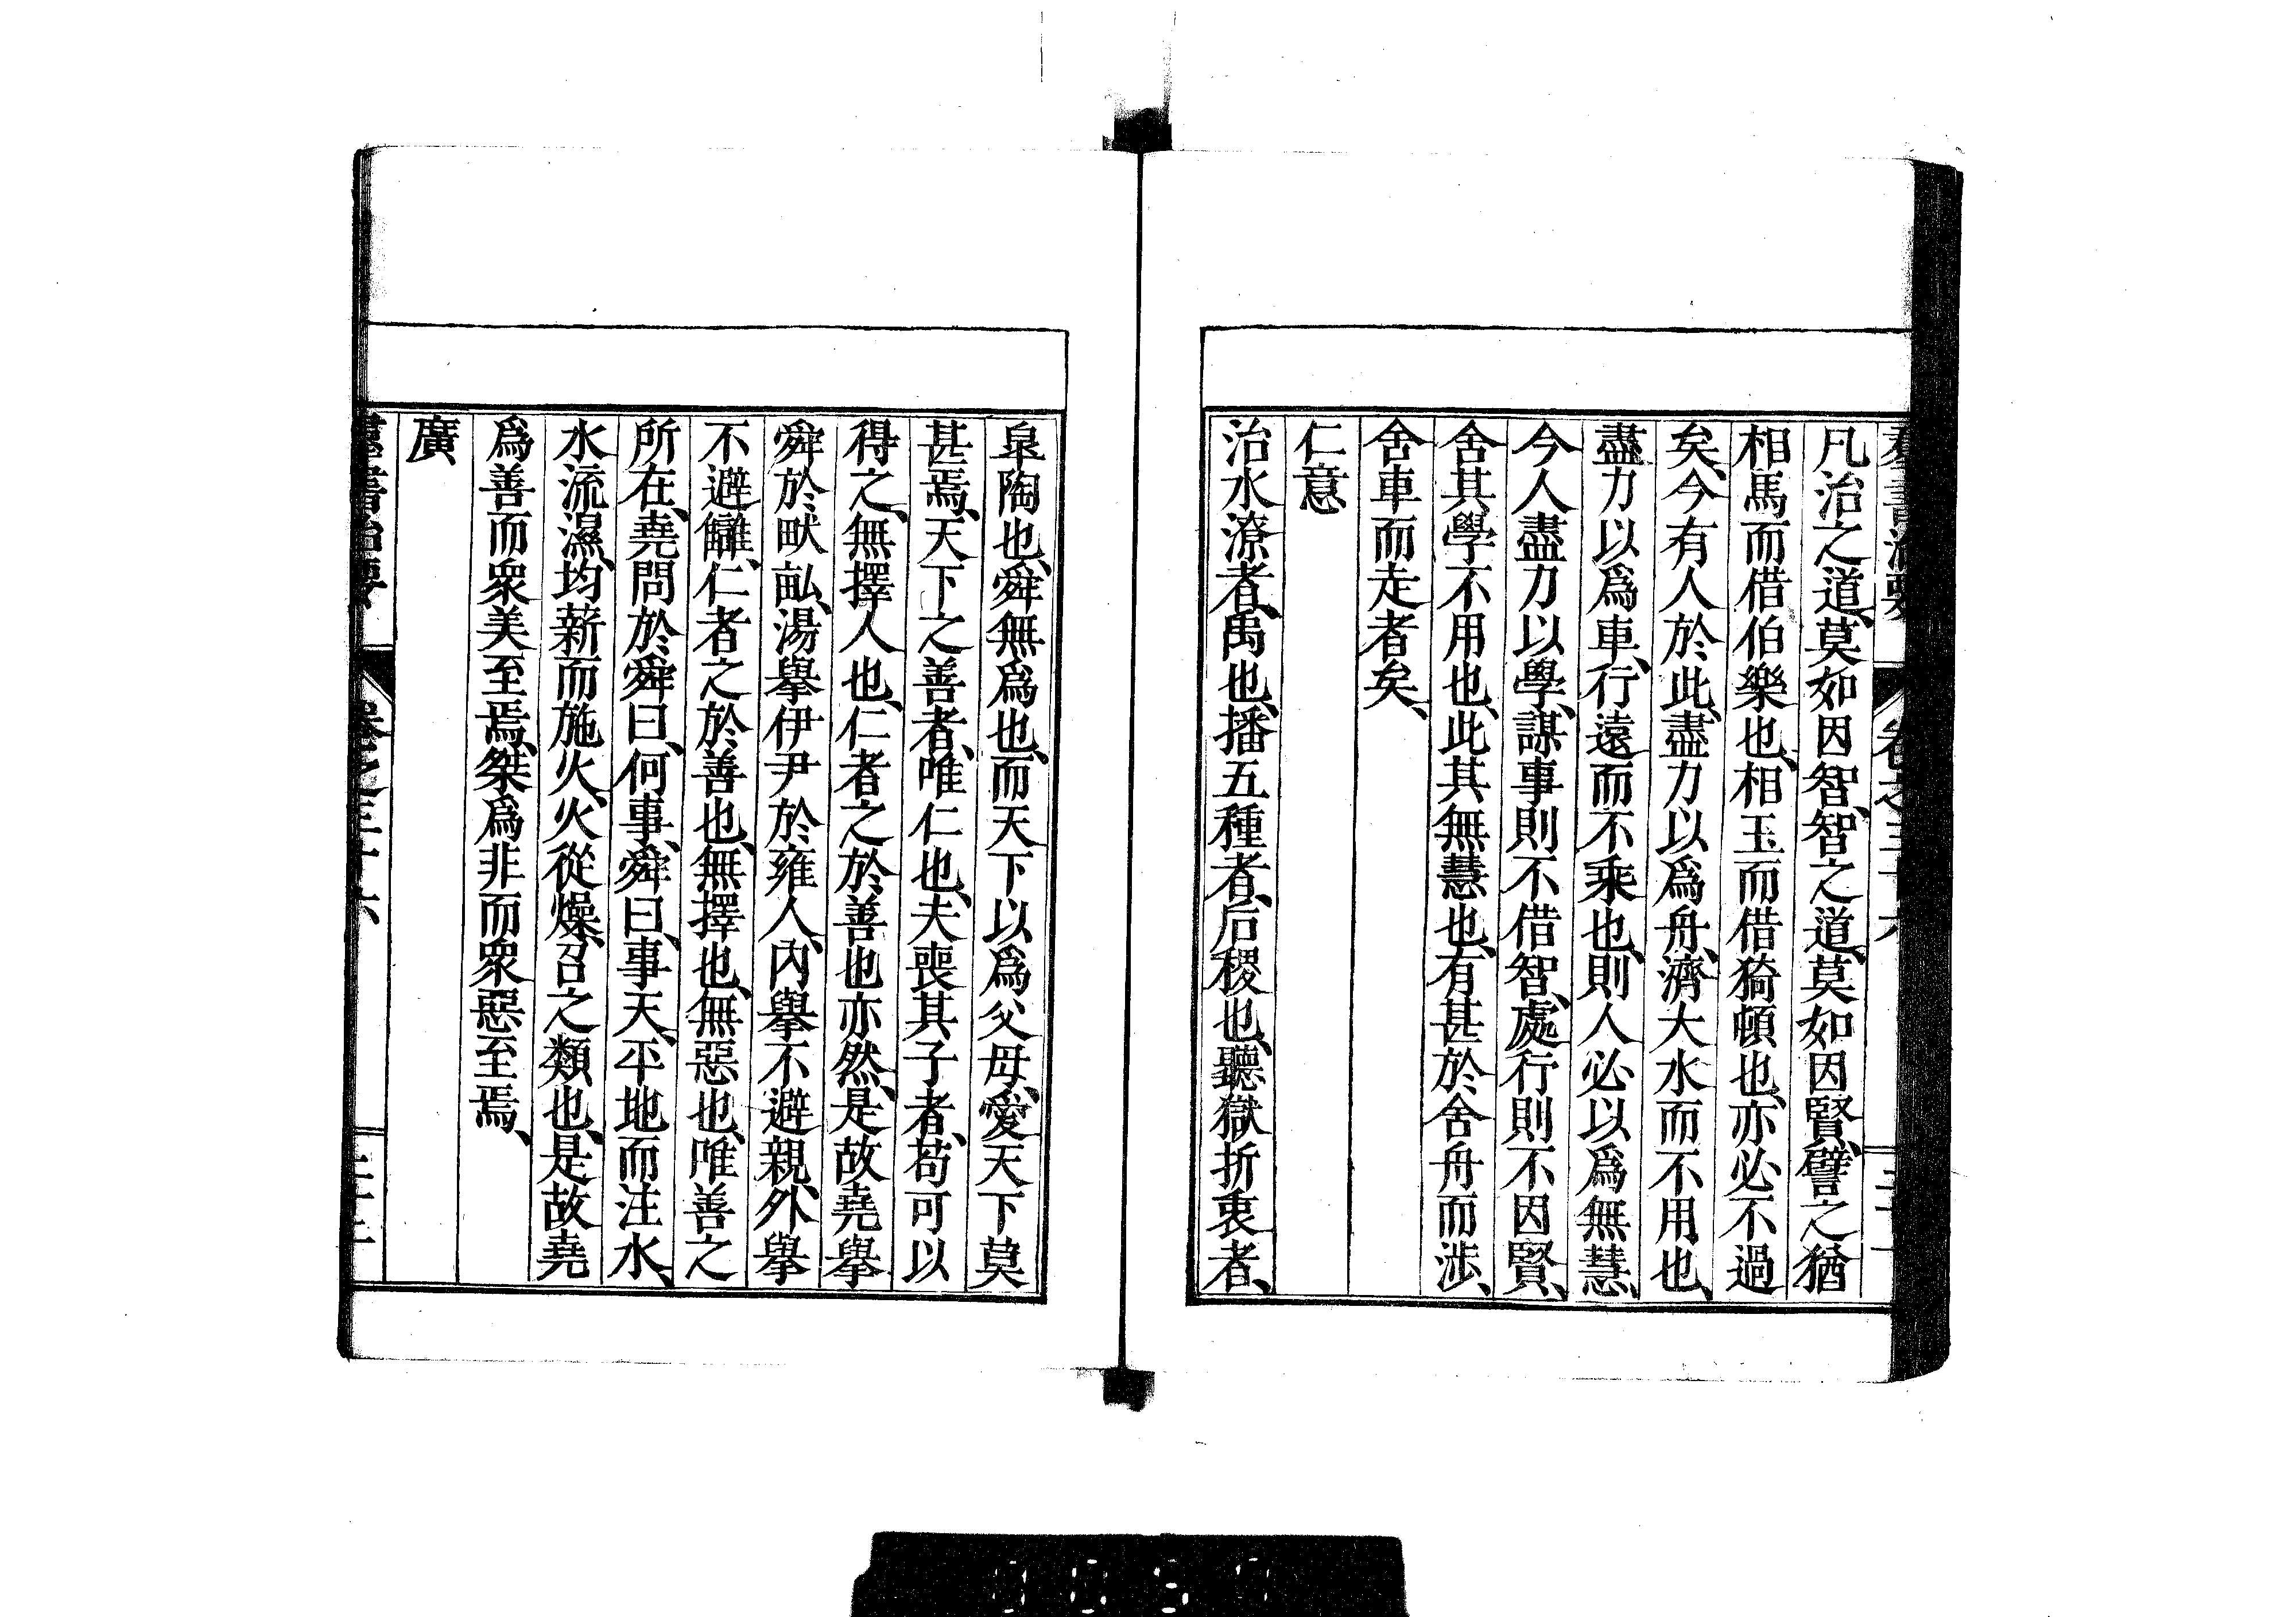 凡治之道、莫如因智、智之道、莫如因賢、譬之猶
相馬而借伯樂也、相玉而借猗頓也、亦必不過
矣、今有人於此、盡力以爲舟、濟大水而不用也、
盡力以爲車、行遠而不乘也、則人必以爲無慧、
今人盡力以學、謀事則不借智、處行則不因賢、
舍其學不用也、此其無慧也、有甚於舍舟而涉、
舍車而走者矣、
仁意
治水潦者、禹也、播五種者、后稷也、聽獄折衷者、
皐陶也、舜無爲也、而天下以爲父母、愛天下莫
甚焉、天下之善者、唯仁也、夫喪其子者、苟可以
得之、無擇人也、仁者之於善也亦然、是故堯舉
舜於畎畝、湯舉伊尹於雍人、內舉不避親、外舉
不避讎、仁者之於善也、無擇也、無惡也、唯善之
所在、堯問於舜曰、何事、舜曰、事天、平地而注水、
水流濕、均薪而施火、火從燥、召之類也、是故堯
爲善而衆美至焉、桀爲非而衆惡至焉、
廣
羣書治要 卷之三十六